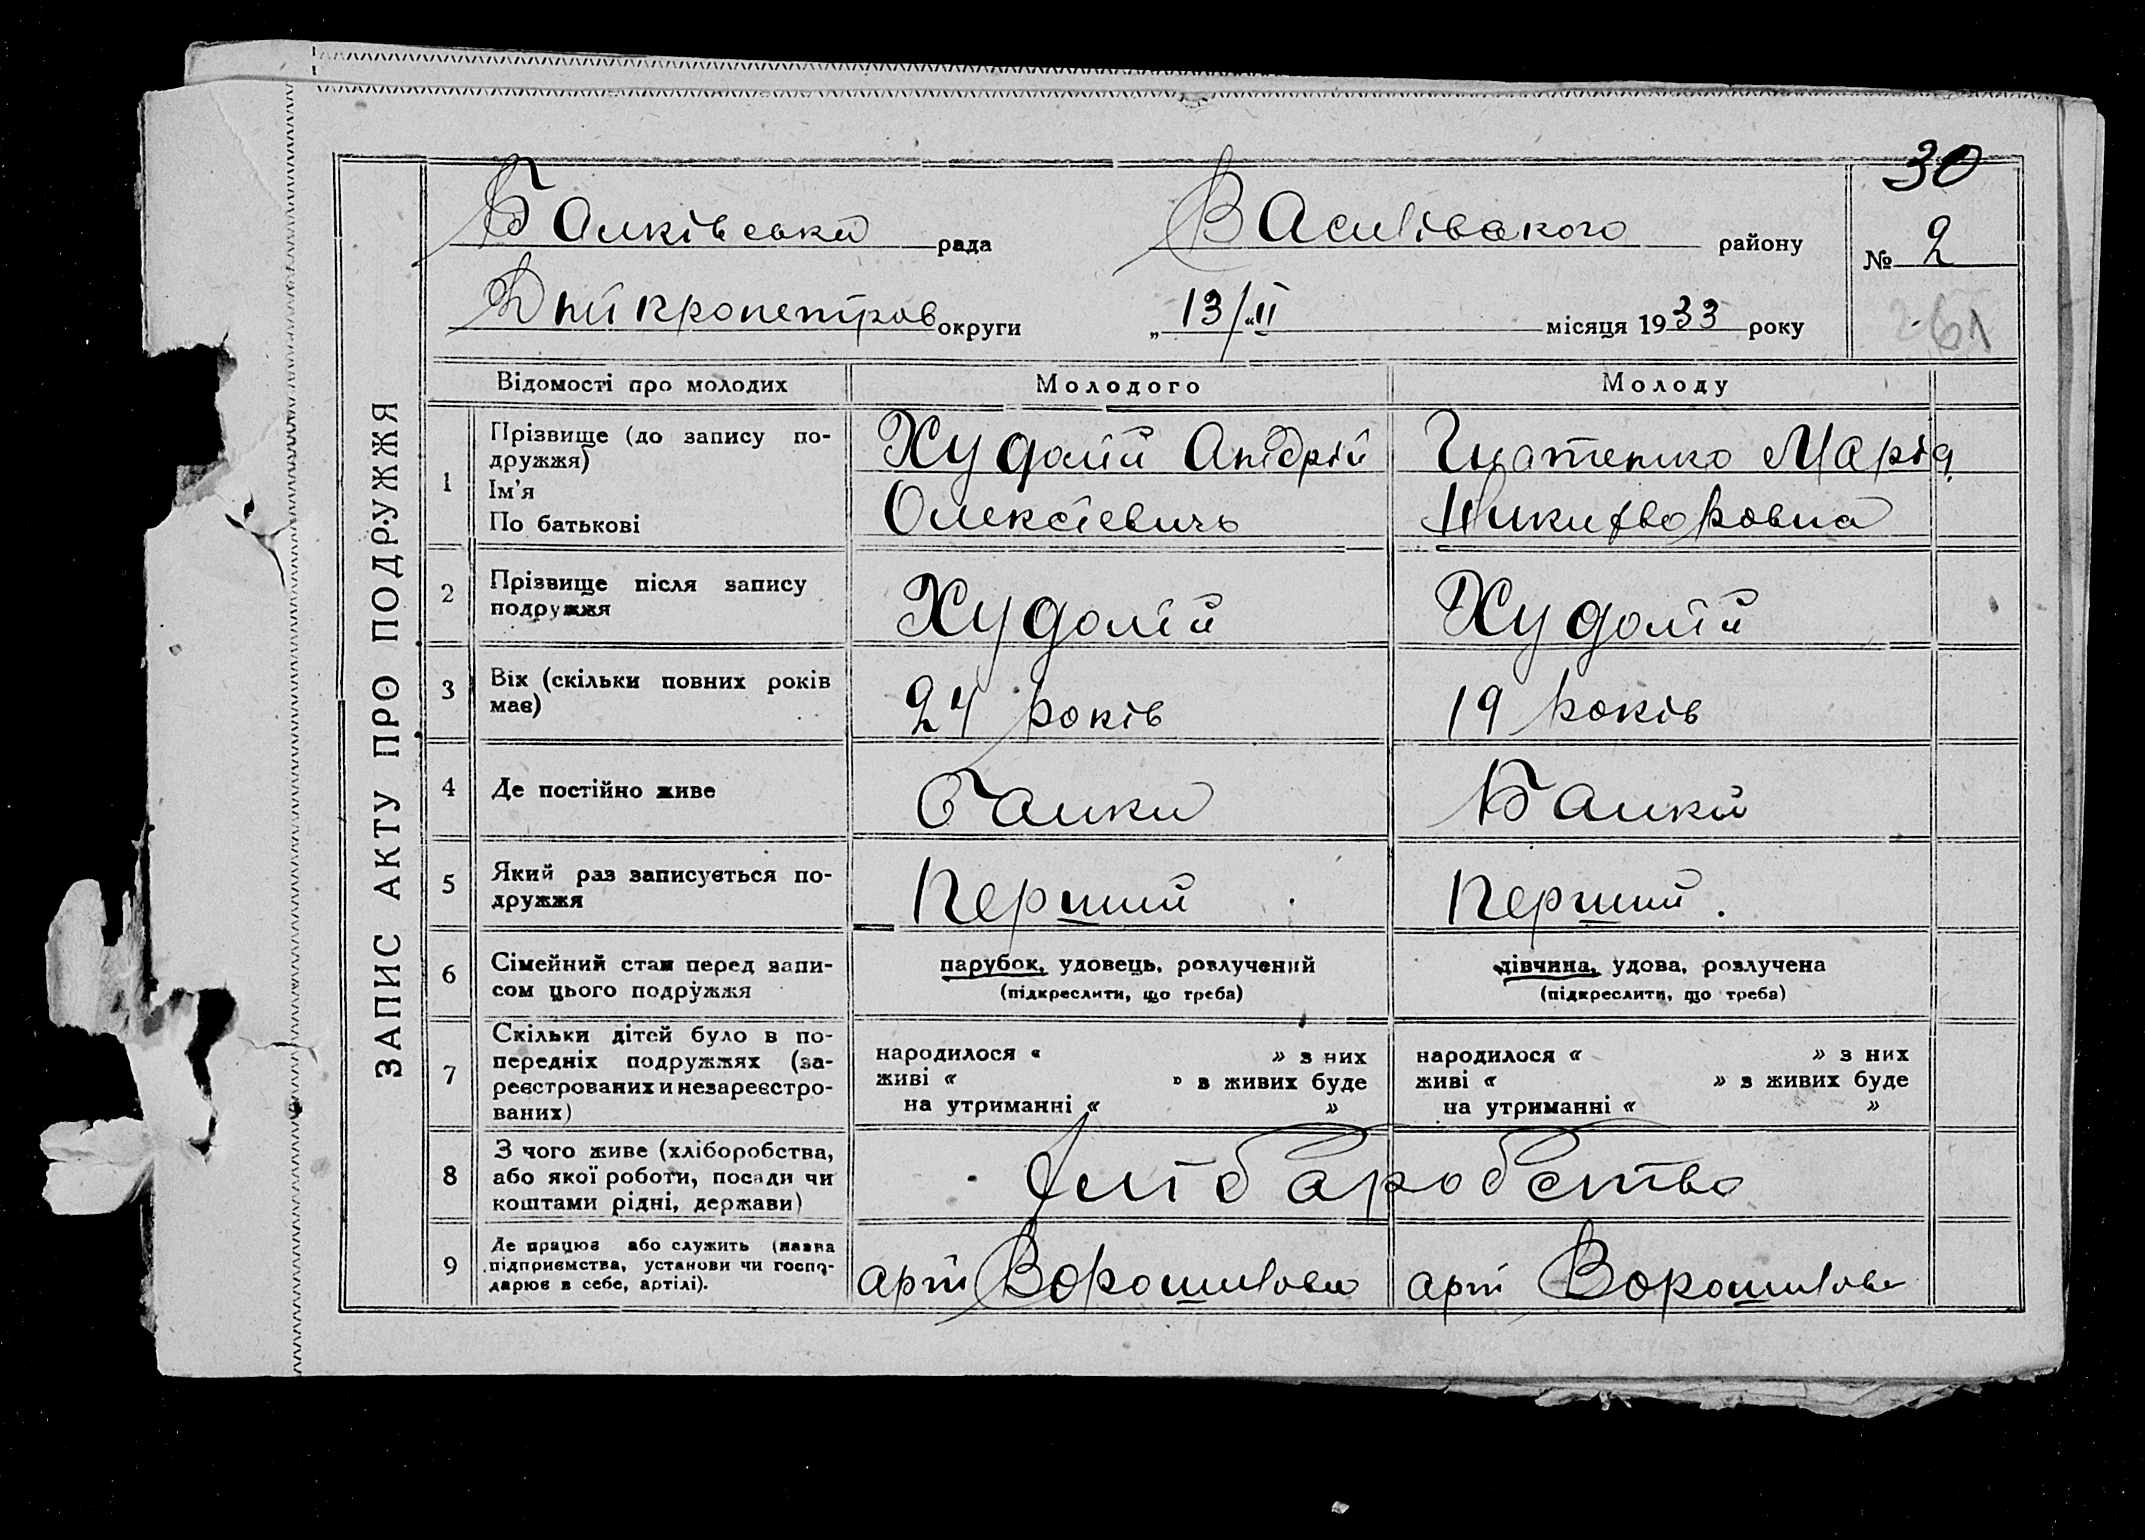 30
Балківська рада Василівського району № 2
Дніпропетров округи „13/„II місяця 1933 року
261
ЗАПИС АКТУ ПРО ПОДРУЖЖЯ
Відомості про молодих Молодого Молоду
1 Прізвище (до запису по- Худолій Андрій Гнатенко Марія
дружжя)
Ім'я
По батькові Олексієвичь Никифворовна
2 Прізвище після запису Худолій Худолій
подружжя
3 Вік (скільки повних років 24 років 19 років
має)
4 Де постійно живе Балки Балки
5 Який раз записується по- Перший Перший.
дружжя
6 Сімейний стан перед запи- парубок, удовець, розлучений дівчина, удова, розлучена
сом цього подружжя (підкреслити, що треба) (підкреслити, що треба)
7 Скільки дітей було в по-
передніх подружжях (за- народилося « » з них народилося « » з них
реєстрованих и незареєстро- живі « » в живих буде живі « » в живих буде
ваних) на утриманні « » на утриманні « »
8 З чого живе (хліборобства,
або якої роботи, посади чи Хлібаробство
коштами рідні, держави)
9 Де працює або служить (назва
підприємства, установи чи госпо- арт Ворошилова арт Ворошилова
дарює в себе, артілі).